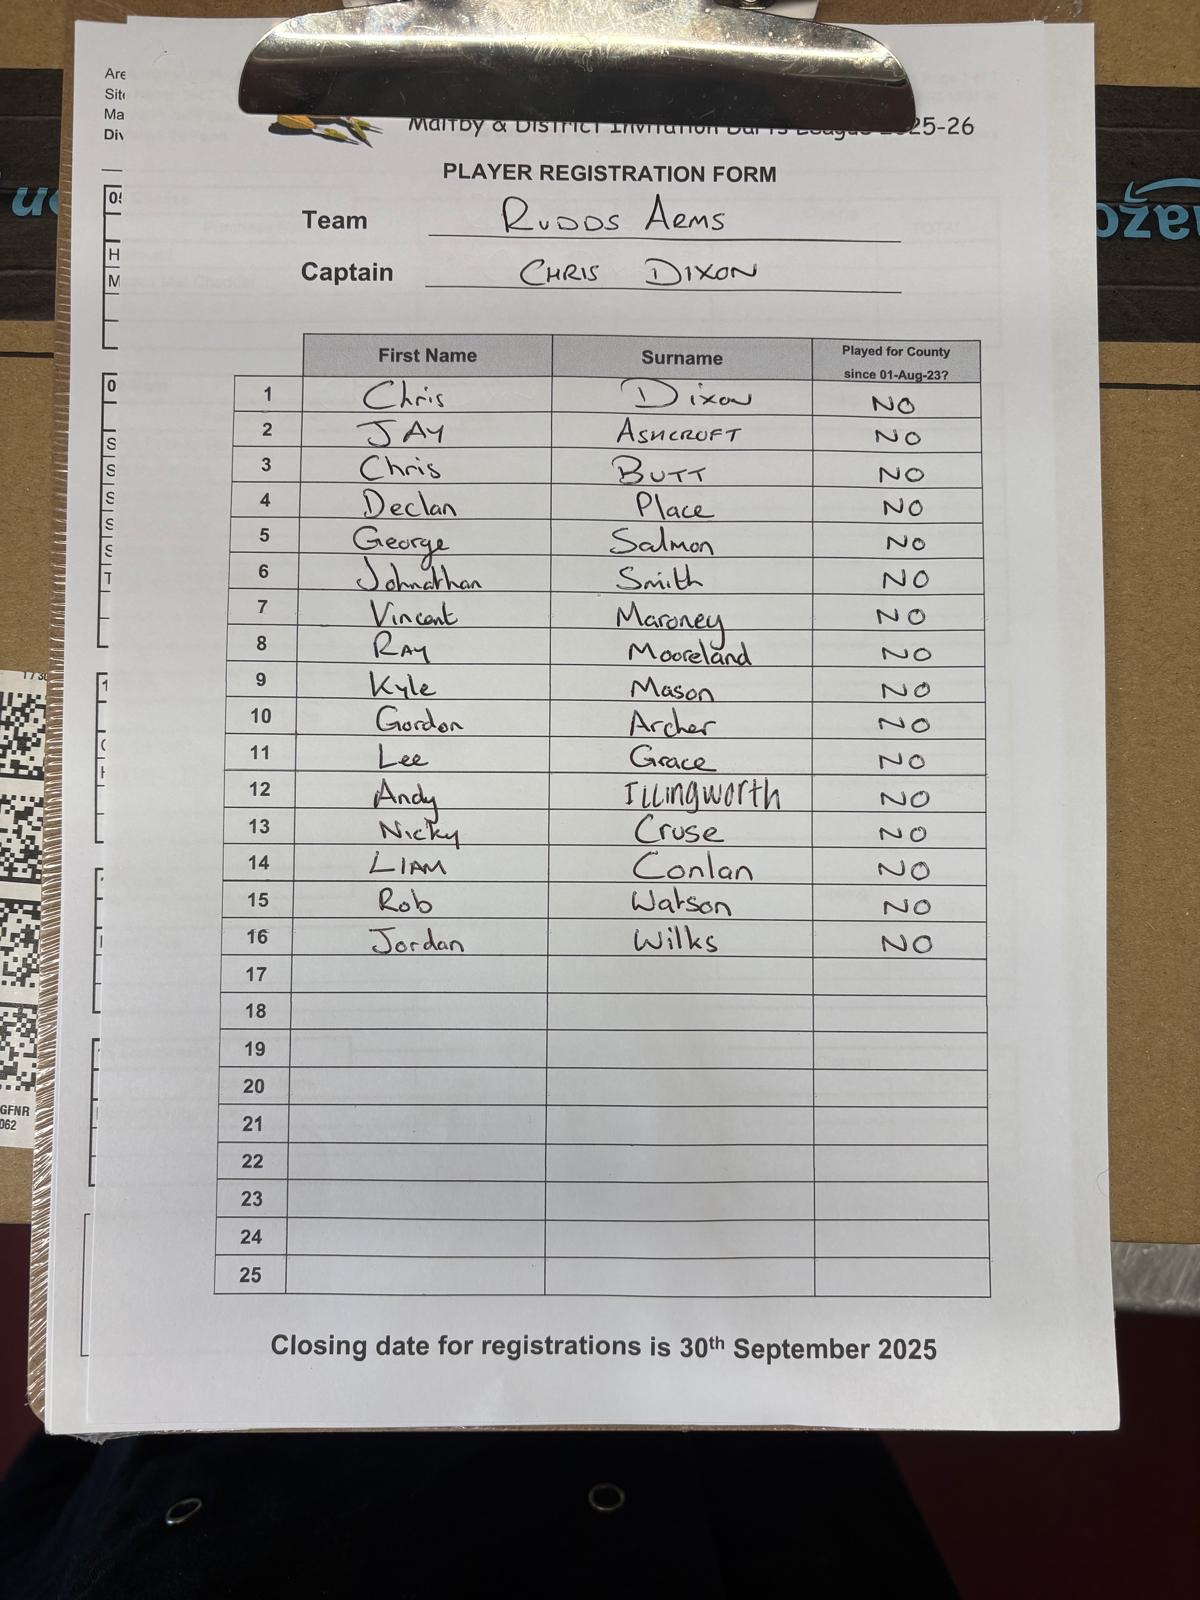 Are
Site
Ma
Div
Maltby & District Invitation Darts League 2025-26
PLAYER REGISTRATION FORM
Team RUDDS ARMS
Captain CHRIS DIXON
First Name Surname Played for County since 01-Aug-23?
1 Chris Dixon NO
2 JAY ASHCROFT NO
3 Chris BUTT NO
4 Declan Place NO
5 George Salmon NO
6 Johnathan Smith NO
7 Vincent Maroney NO
8 RAY Mooreland NO
9 Kyle Mason NO
10 Gordon Archer NO
11 Lee Grace NO
12 Andy Illingworth NO
13 Nicky Cruse NO
14 LIAM Conlan NO
15 Rob Watson NO
16 Jordan Wilks NO
17
18
19
20
21
22
23
24
25
Closing date for registrations is 30th September 2025
GFNR
062